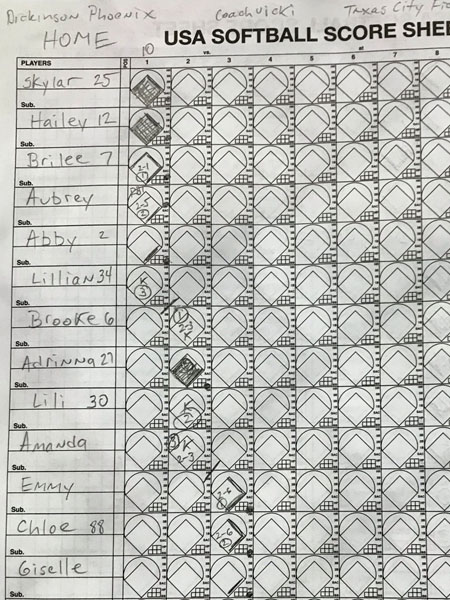 Dickinson Phoenix Coach Vicki Texas City
HOME 10 USA SOFTBALL SCORE SHE
vs. at
PLAYERS POS 1 2 3 4 5 6 7 8
Skylar 25
Sub.
Hailey 12
Sub.
Brilee 7
2-1
1
Sub.
Aubrey
2-5
2
Sub.
Abby 2
Sub.
Lillian 34
K
3
Sub.
Brooke 6
1
2-3
K
Sub.
Adrinna 27
Sub.
Lili 30
K
Sub.
Amanda
3 K
2-3
Sub.
Emmy
2-6
1
Sub.
Chloe 88
2-6
2
Sub.
Giselle
Sub.